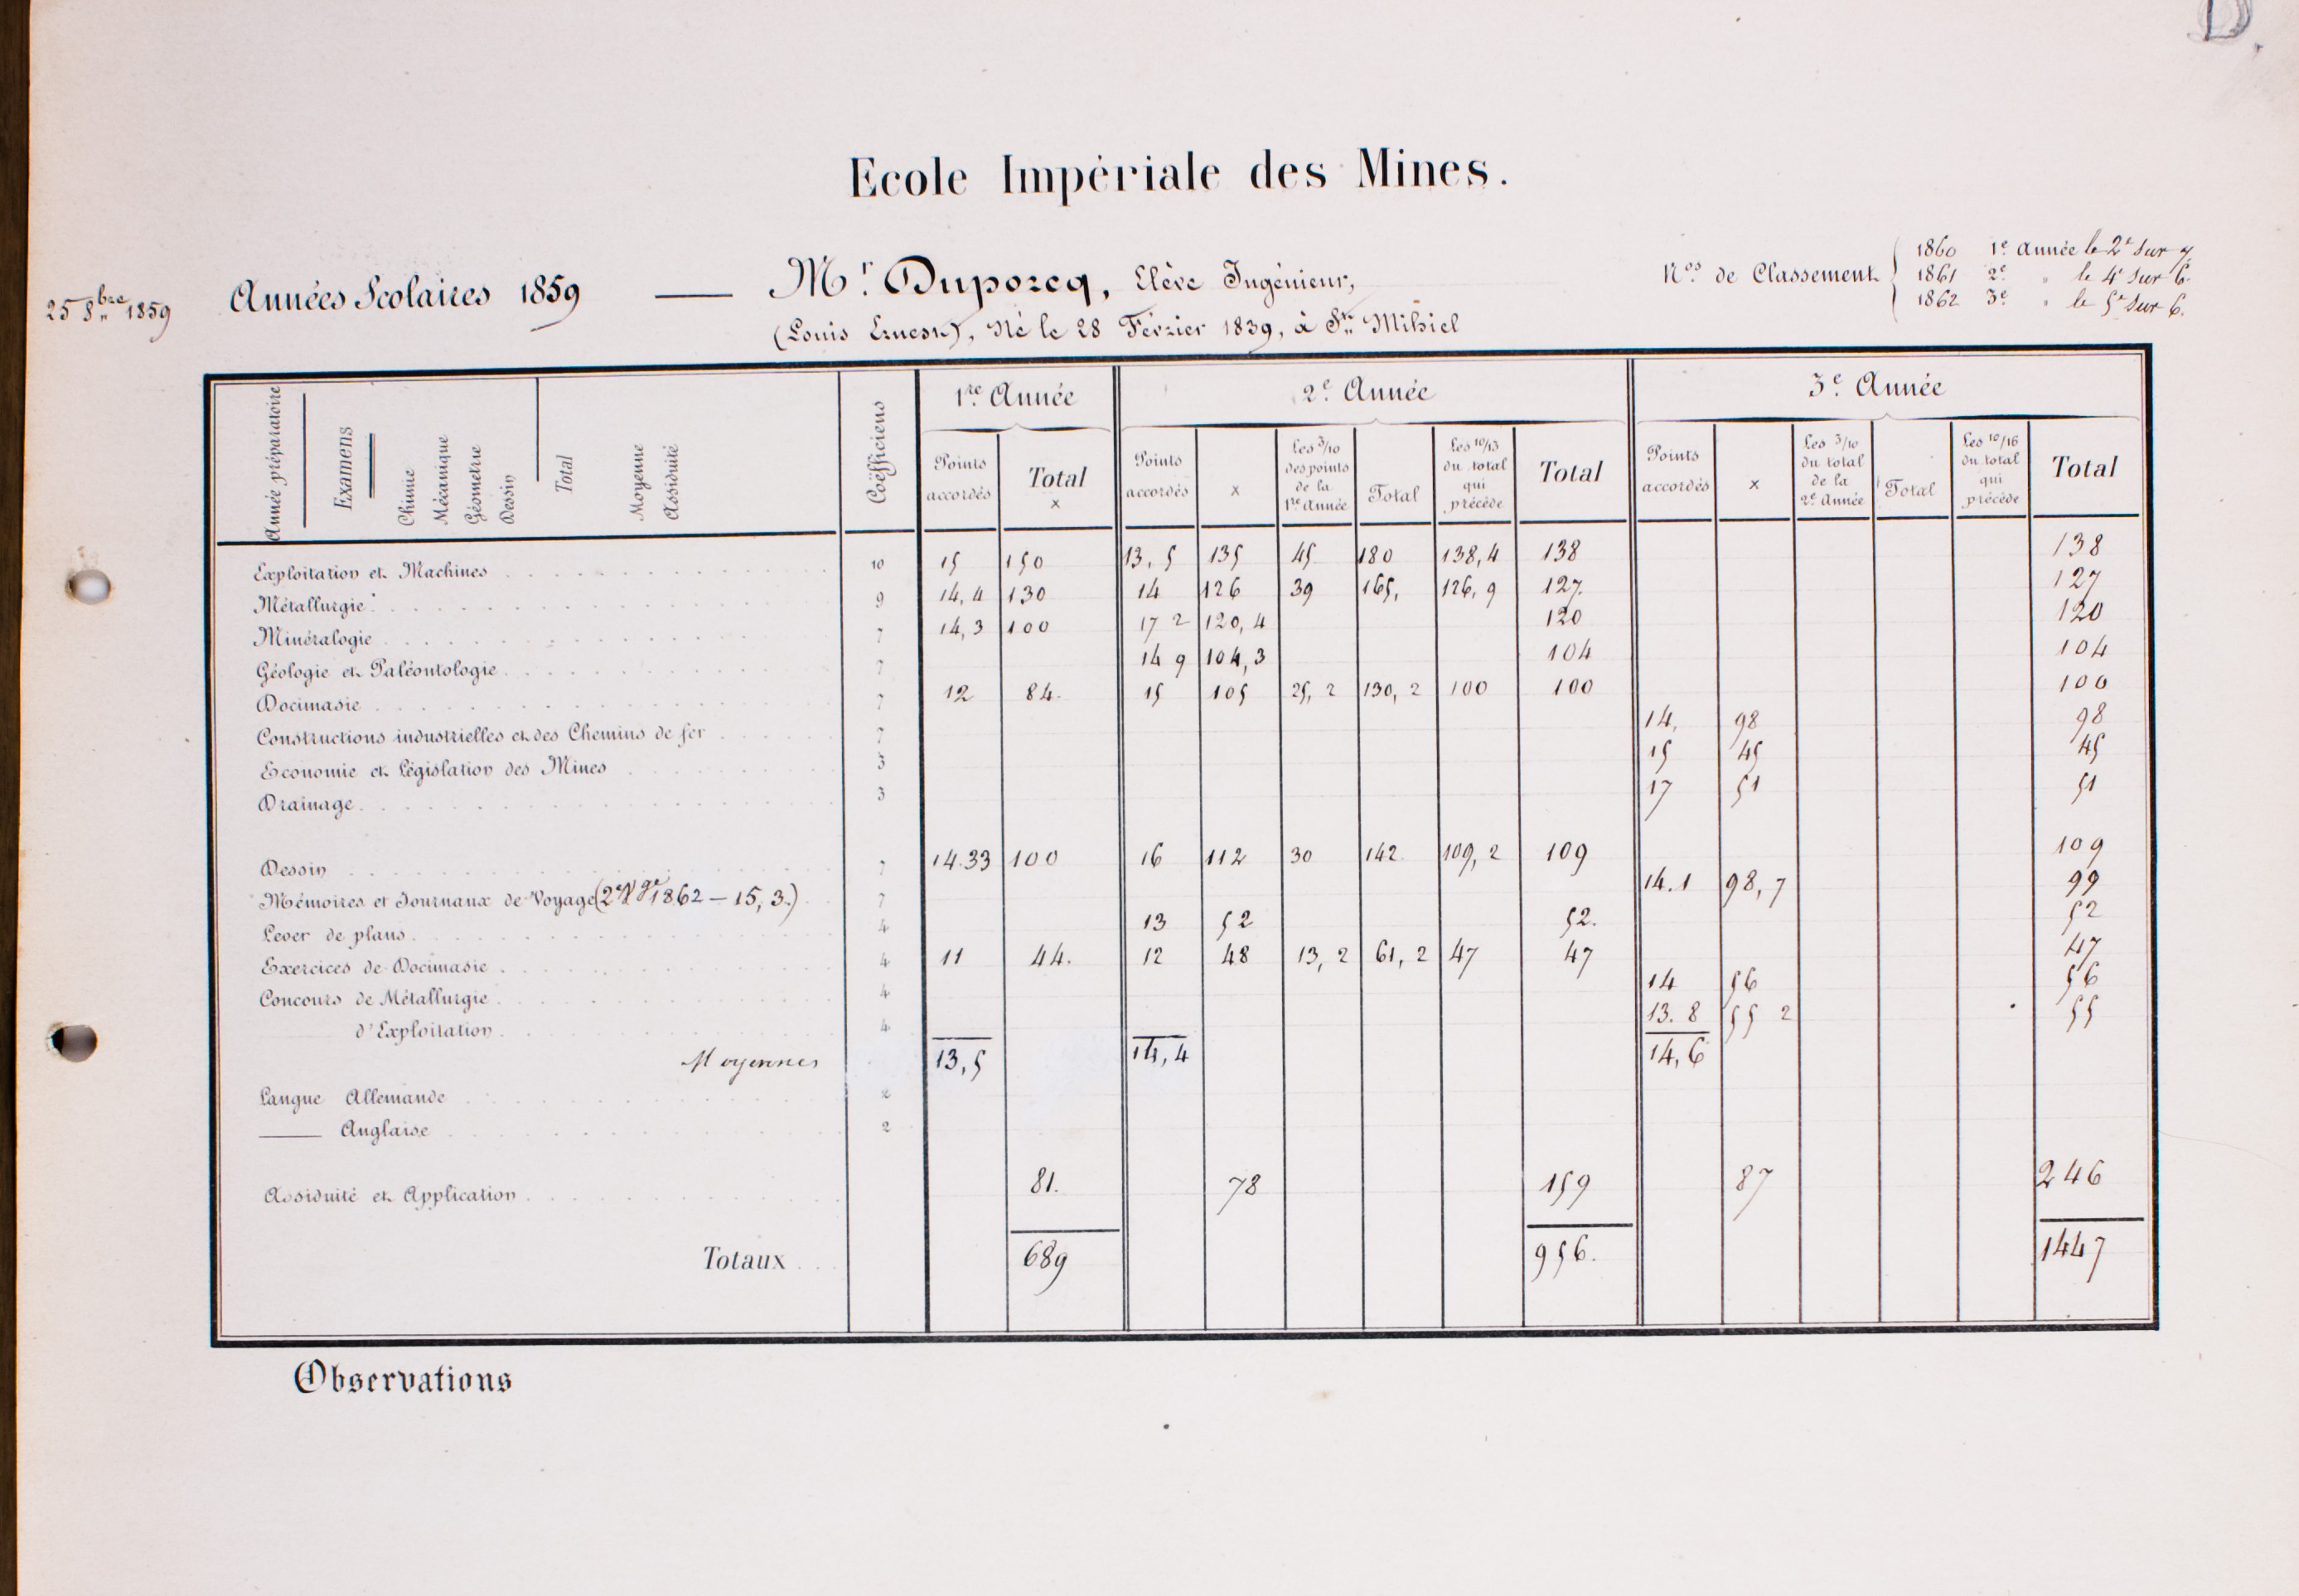 D.
Ecole Impériale des Mines.
25 8bre 1859
Années Scolaires 1859 — Mr. Duporcq, Elève Ingénieur,
(Louis Ernest), Né le 28 Février 1839, à St. Mihiel
Nos de Classement
1860 1e Année le 2e sur 7.
1861 2e " le 4e sur 6.
1862 3e " le 5e sur 6.
Année préparatoire
Examens
Chimie
Mécanique
Géometrie
Dessin
Total
Moyenne
Assiduité
Coëfficiens
1re Année
Points accordés
Total x
2e Année
Points accordés
x
Les 3/10 des points de la 1re Année
Total
Les 10/13 du total qui précède
Total
3e Année
Points accordés
x
Les 3/10 du total de la 2e Année
Total
Les 10/16 du total qui précède
Total
Exploitation et Machines 10 15 150 13,5 135 45 180 138,4 138 138
Métallurgie 9 14,4 130 14 126 39 165, 126,9 127. 127
Minéralogie 7 14,3 100 17 2 120,4 120 120
Géologie et Paléontologie 7 14 9 104,3 104 104
Docimasie 7 12 84. 15 105 25,2 130,2 100 100 100
Constructions industrielles et des Chemins de fer 7 14, 98 98
Economie et Législation des Mines 3 15 45 45
Drainage 3 17 51 51
Dessin 7 14.33 100 16 112 30 142 109,2 109 109
Mémoires et Journaux de Voyage (2e Vge 1862 — 15,3.) 7 14.1 98,7 99
Lever de plans 4 13 52 52. 52
Exercices de Docimasie 4 11 44. 12 48 13,2 61,2 47 47 47
Concours de Métallurgie 4 14 56 56
d'Exploitation 4 13.8 55 2 55
Moyennes 13,5 14,4 14,6
Langue Allemande 2
—— Anglaise 2
Assiduité et Application 81. 78 159 87 246
Totaux 689 956. 1447
Observations